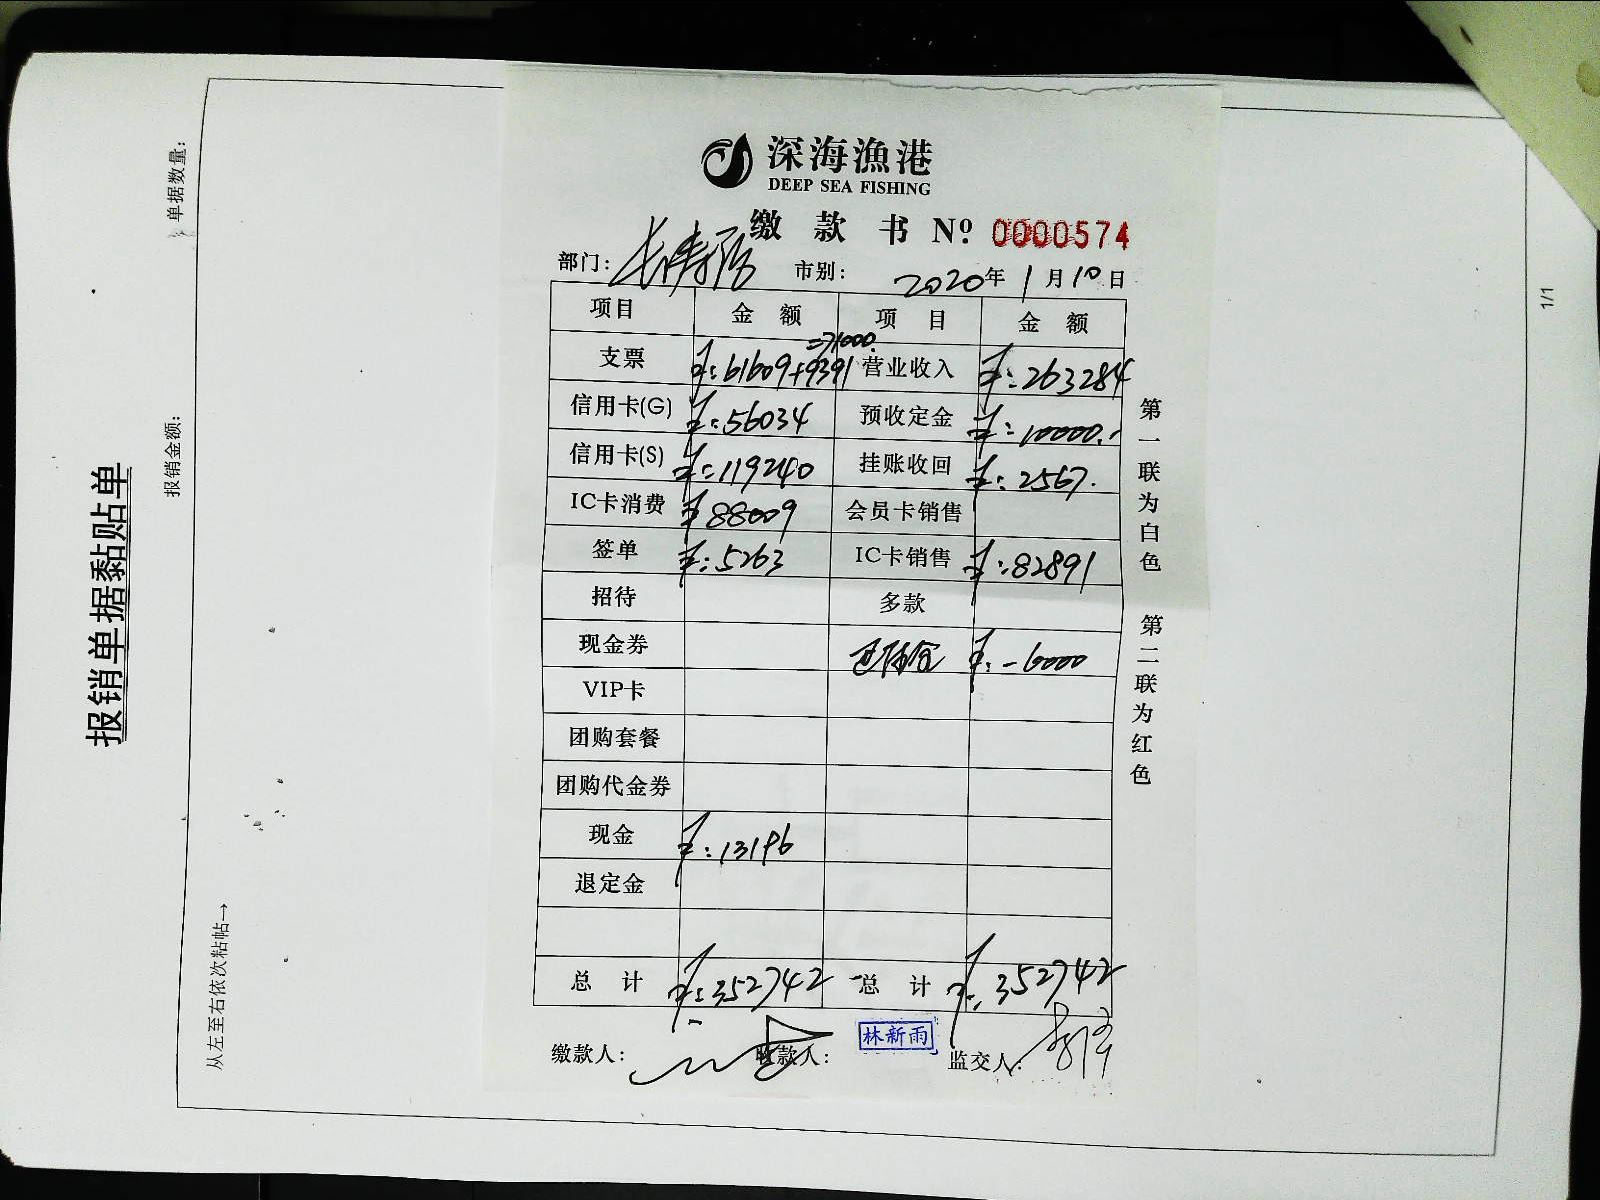 报销单据黏贴单
单据数量:
报销金额:
从左至右依次粘帖→
1/1
深海漁港
DEEP SEA FISHING
缴 款 书 Nº 0000574
部门: 市别: 2020年1月10日
项目 金 额 项 目 金 额
=71000.
支票 ¥:61609+9391 营业收入 ¥:263284
信用卡(G) ¥:56034 预收定金 ¥:10000.-
信用卡(S) ¥:119240 挂账收回 ¥:2567.
IC卡消费 ¥88009 会员卡销售
签单 ¥:5263 IC卡销售 ¥:82891
招待 多款
现金券 ¥:-6000
VIP卡
团购套餐
团购代金券
现金 ¥:13196
退定金
总 计 ¥:352742 总 计 ¥:352742
缴款人: 收款人: 林新雨 监交人:
第一联为白色 第二联为红色